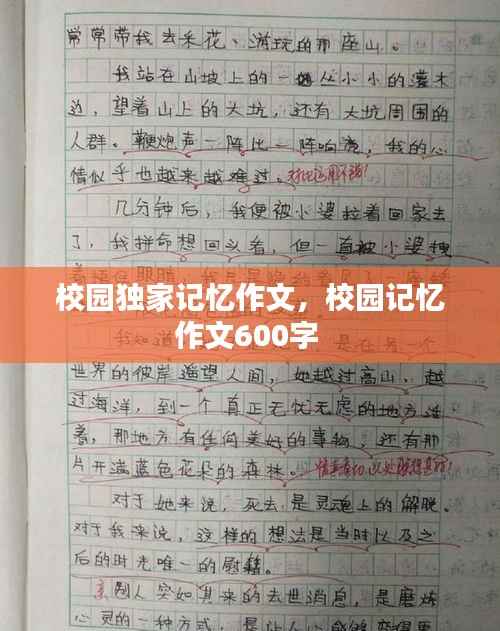 常常带我去采花、游玩的那座山。
我站在山坡上的一丛小小的灌木
边,望着山上的大坑,还有大坑周围的
人群。鞭炮声一阵比一阵响亮,我的心
情似乎也越来越难过。
几分钟后,我便被小婆拉着回家去
了,我拼命想回头看,但一直被小婆
校园独家记忆作文,校园记忆
作文600字
世界的彼岸遥望人间,她越过高山、越
过海洋,到一个真正无忧无虑的地方活
着,那地方有任何美好的事物,还有那
片开满蓝色花朵的森林。
对于她来说,死去是灵魂上的解脱。
对于我来说,这样的想法是当时以及之
后的时光唯一的慰籍。
亲别人突如其来的去世消息,是磨炼
心灵的一种方式,是让人心能够变得更